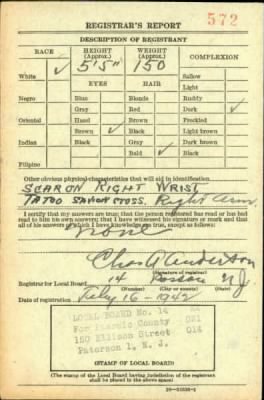 572
REGISTRAR'S REPORT
DESCRIPTION OF REGISTRANT
RACE HEIGHT (Approx.) WEIGHT (Approx.) COMPLEXION
✓ 5'5" 150
White ✓ Sallow
EYES HAIR Light
Negro Blue Blonde Ruddy
Gray Red Dark ✓
Oriental Hazel Brown Freckled
Brown ✓ Black ✓ Light brown
Indian Black Gray Dark brown
Bald ✓ Black
Filipino
Other obvious physical characteristics that will aid in identification
SCAR ON RIGHT WRIST
TATOO CROSS, Right Arm
I certify that my answers are true; that the person registered has read or has had
read to him his own answers; that I have witnessed his signature or mark and that
all of his answers of which I have knowledge are true, except as follows:
none
Chas Anderson
(Signature of registrar)
Registrar for Local Board 14 NJ
(Number) (City or county) (State)
Date of registration 16-1942
LOCAL BOARD No. 14
For Passaic County 031
150 Ellison Street 014
Paterson 1, N. J.
(STAMP OF LOCAL BOARD)
(The stamp of the Local Board having jurisdiction of the registrant
shall be placed in the above space.)